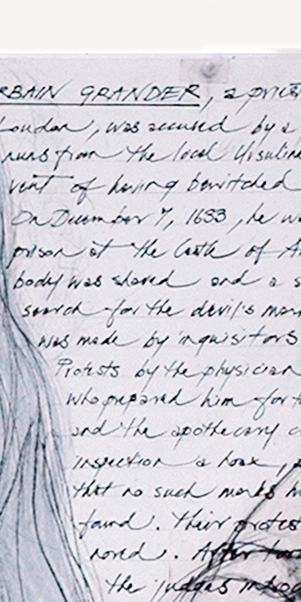 RBAIN GRANDER, a priest
Loudon, was accused by a
nuns from the local Ursulin
vent of having bewitched
On December 7, 1633, he wa
prison at the Castle of A
body was shaved and a s
search for the devil's mar
was made by inquisitors
Protests by the physician
who prepared him for t
and the apothecary c
inspection a hoax, p
that no such marks h
found. Their protest
nored. After tor
the judges